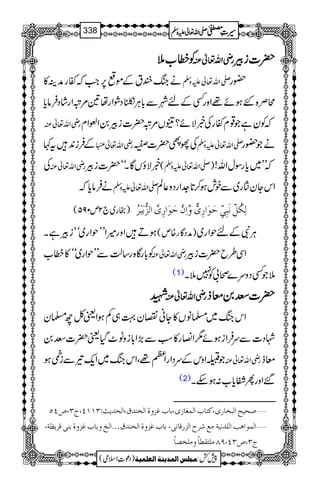 سیرتِ مصطفیٰ صلی اللہ تعالیٰ علیہ وسلم 338
حضرت زبیر رضی اللہ تعالیٰ عنہ کو خطاب ملا
حضور صلی اللہ تعالیٰ علیہ وسلم نے جنگ خندق کے موقع پر جب کہ کفار مدینہ کا
محاصرہ کئے ہوئے تھے اور کسی کے لئے شہر سے باہر نکلنا دشوار تھا تین مرتبہ ارشاد فرمایا
کہ کون ہے جو قوم کفار کی خبر لائے؟ تینوں مرتبہ حضرت زبیر بن العوام رضی اللہ تعالیٰ عنہ
نے جو حضور صلی اللہ تعالیٰ علیہ وسلم کی پھوپھی حضرت صفیہ رضی اللہ تعالیٰ عنہا کے فرزند ہیں یہ کہا
کہ ’’میں یا رسول اللہ! (صلی اللہ تعالیٰ علیہ وسلم) خبر لاؤں گا۔‘‘ حضرت زبیر رضی اللہ تعالیٰ عنہ کی
اس جان نثاری سے خوش ہو کر تاجدار دو عالم صلی اللہ تعالیٰ علیہ وسلم نے فرمایا کہ
لِكُلِّ نَبِيٍّ حَوَارِيٌّ وَّاِنَّ حَوَارِيَّ الزُّبَيْرُ (بخاری ج۲ ص۵۹۰)
ہر نبی کے لئے حواری (مددگار خاص) ہوتے ہیں اور میرا ’’حواری‘‘ زبیر ہے۔
اسی طرح حضرت زبیر رضی اللہ تعالیٰ عنہ کو بارگاہ رسالت سے ’’حواری‘‘ کا خطاب
ملا جو کسی دوسرے صحابی کو نہیں ملا۔(1)
حضرت سعد بن معاذ رضی اللہ تعالیٰ عنہ شہید
اس جنگ میں مسلمانوں کا جانی نقصان بہت ہی کم ہوا یعنی کل چھ مسلمان
شہادت سے سرفراز ہوئے مگر انصار کا سب سے بڑا بازو ٹوٹ گیا یعنی حضرت سعد بن
معاذ رضی اللہ تعالیٰ عنہ جو قبیلہ اوس کے سردار اعظم تھے، اس جنگ میں ایک تیر سے زخمی ہو
گئے اور پھر شفایاب نہ ہو سکے۔(2)
صحیح البخاری، کتاب المغازی، باب غزوۃ الخندق، الحدیث:٤١١٣، ج٣، ص٥٤
المواهب اللدنیة مع شرح الزرقانی، باب غزوۃ الخندق...الخ وباب غزوۃ بنی قریظة،
ج٣، ص٨٩،٤٣ ملتقطاً وملخصاً
پیش کش: مجلس المدینة العلمیة (دعوتِ اسلامی)